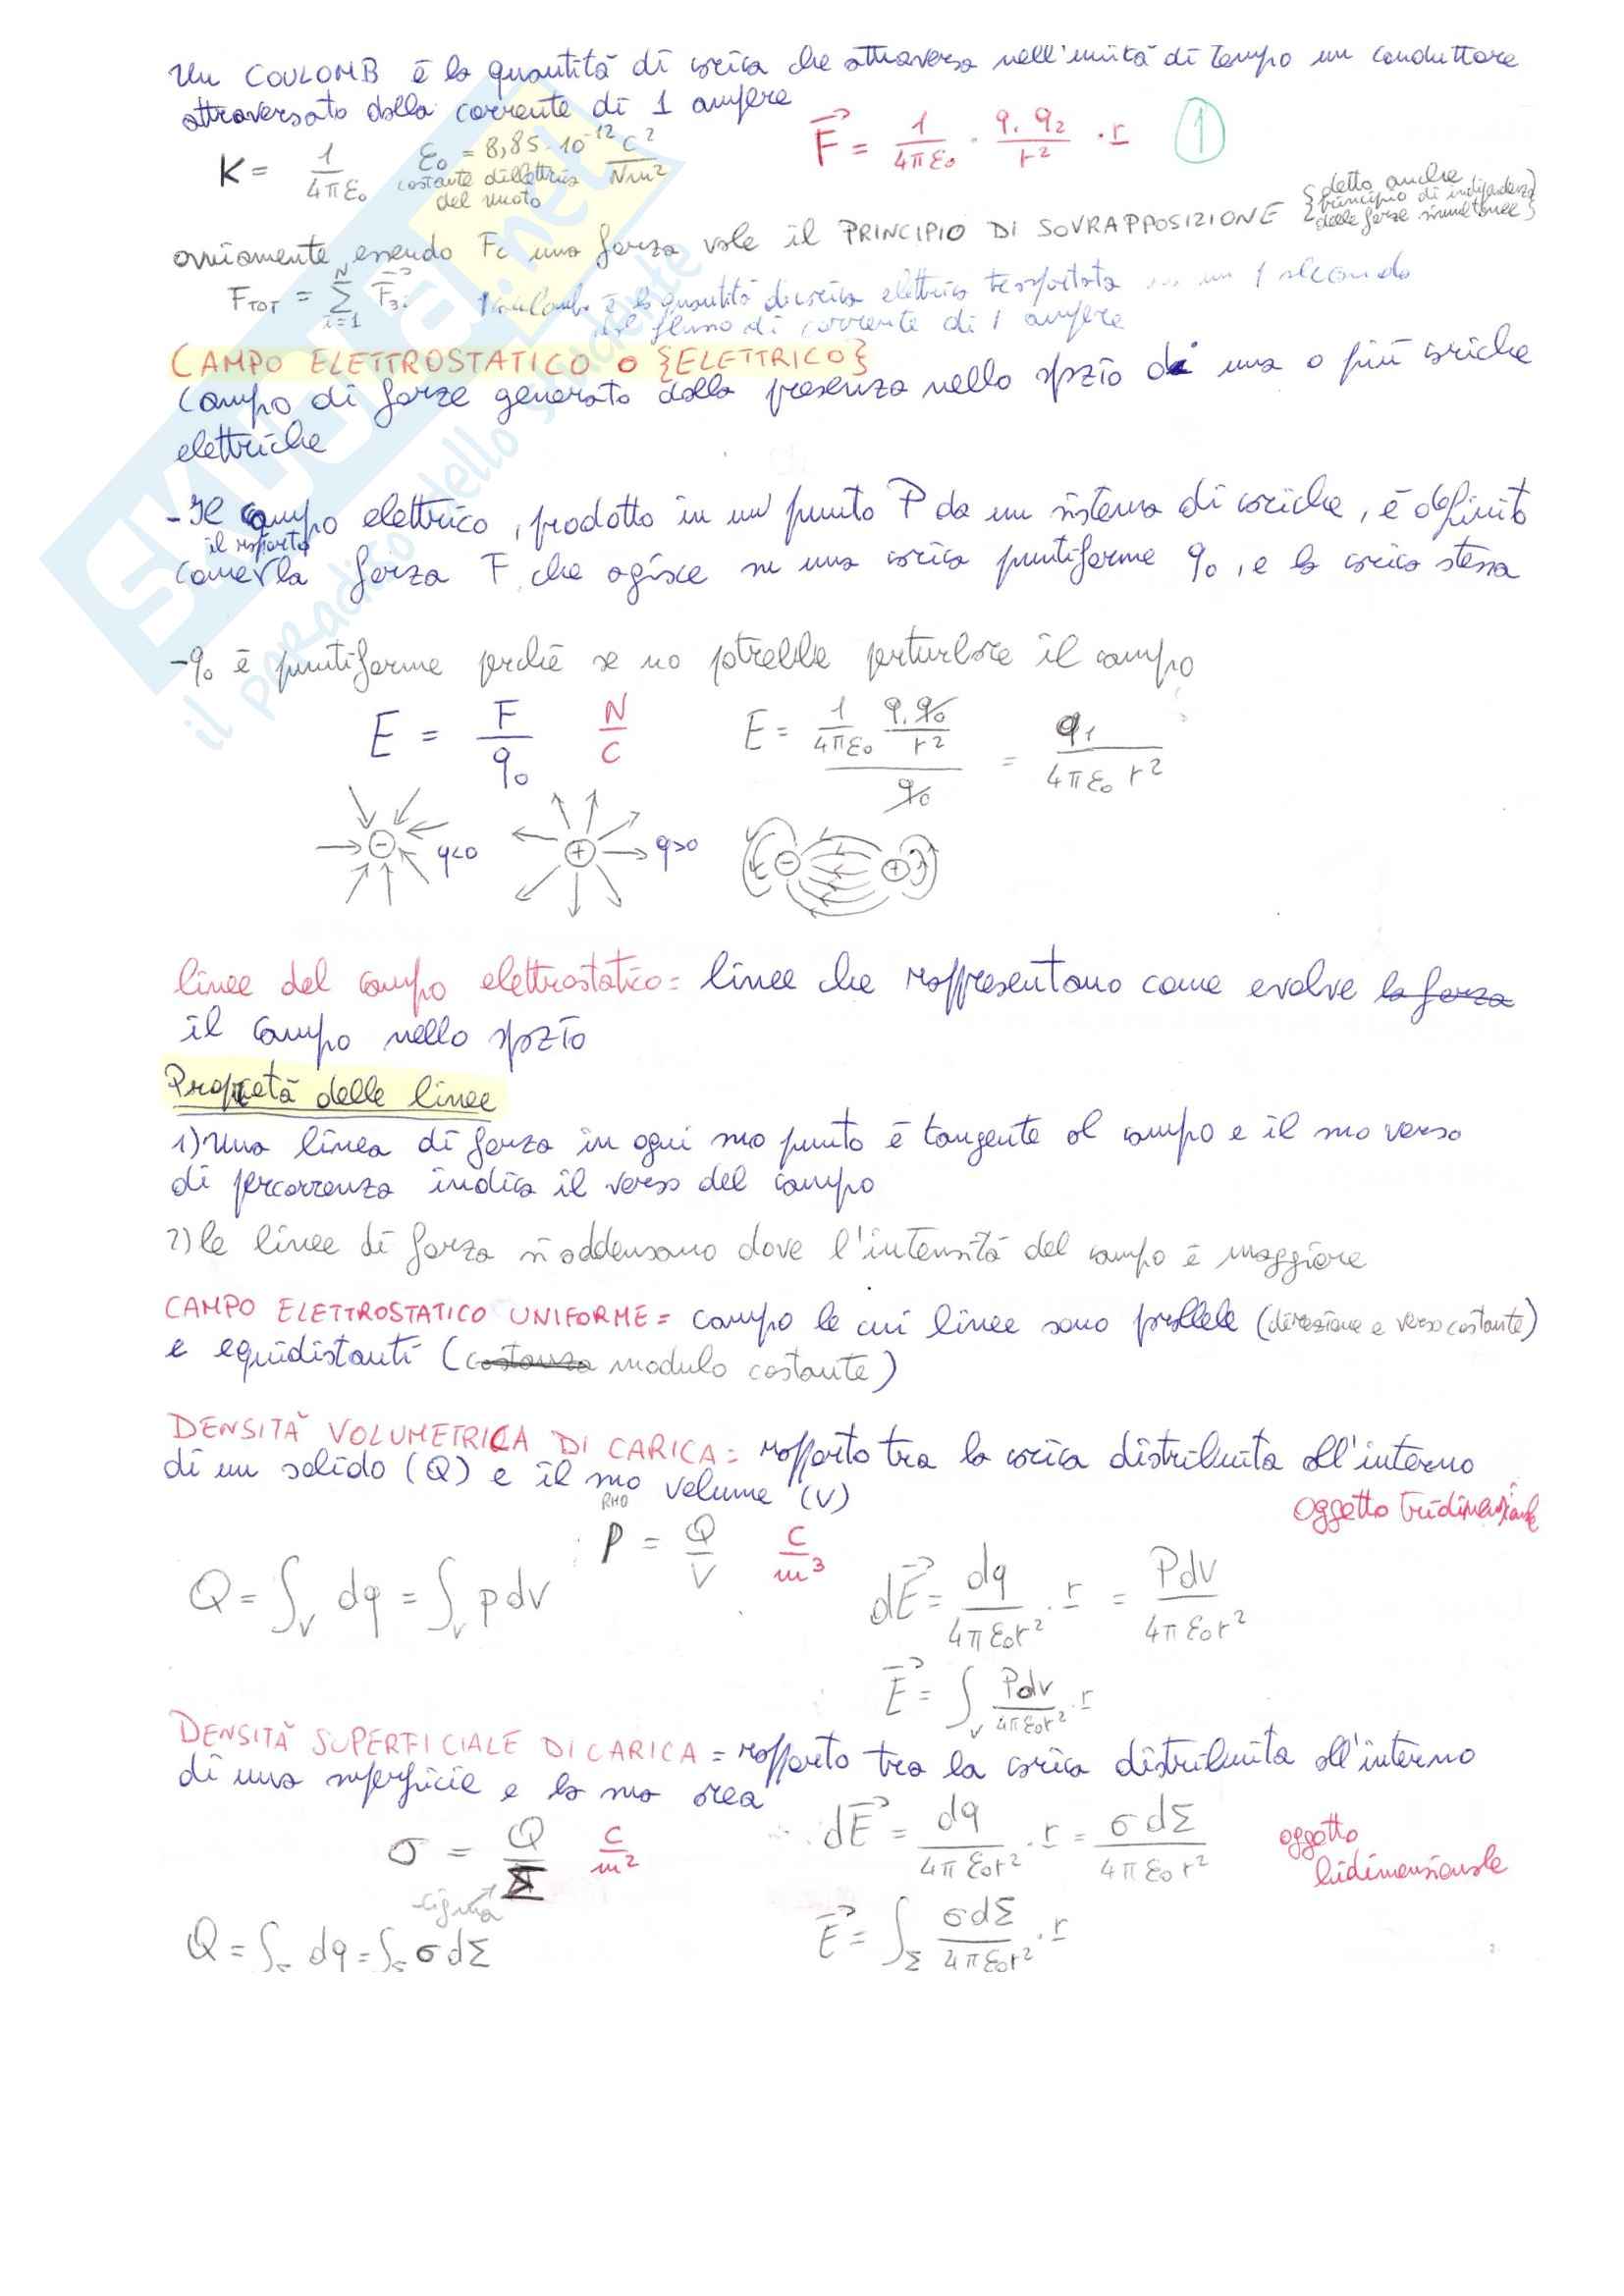 Un COULOMB è la quantità di carica che attraversa nell'unità di tempo un conduttore
attraversato dalla corrente di 1 ampere
F = 1/4πε₀ · q₁ q₂/r² · r
1
K = 1/4πε₀
ε₀ = 8,85·10⁻¹² C²/Nm²
costante dielettrica
del vuoto
{detto anche
principio di indipendenza
delle forze simultanee}
ovviamente essendo Fc una forza vale il PRINCIPIO DI SOVRAPPOSIZIONE
F_TOT = Σ_{i=1}^{N} F_{3i}
1 coulomb è la quantità di carica elettrica trasportata in un 1 secondo
flusso di corrente di 1 ampere
CAMPO ELETTROSTATICO O {ELETTRICO}
Campo di forze generato dalla presenza nello spazio di una o più cariche
elettriche
- Il campo elettrico, prodotto in un punto P da un sistema di cariche, è definito
il rapporto
come la forza F che agisce su una carica puntiforme q₀, e la carica stessa
- q₀ è puntiforme perchè se no potrebbe perturbare il campo
E = F/q₀ N/C
E = (1/4πε₀ q₁q₀/r²)/q₀ = q₁/4πε₀ r²
- q<0
+ q>0
- +
linee del campo elettrostatico = linee che rappresentano come evolve la forza
il campo nello spazio
Proprietà delle linee
1) Una linea di forza in ogni suo punto è tangente al campo e il suo verso
di percorrenza indica il verso del campo
2) le linee di forza si addensano dove l'intensità del campo è maggiore
CAMPO ELETTROSTATICO UNIFORME = campo le cui linee sono parallele (direzione e verso costante)
e equidistanti (costanza modulo costante)
DENSITÀ VOLUMETRICA DI CARICA = rapporto tra la carica distribuita all'interno
di un solido (Q) e il suo volume (V)
RHO
oggetto tridimensionale
ρ = Q/V C/m³
Q = ∫_V dq = ∫_V ρ dv
dE = dq/4πε₀r² · r = ρdv/4πε₀r²
E = ∫_V ρdv/4πε₀r² · r
DENSITÀ SUPERFICIALE DI CARICA = rapporto tra la carica distribuita all'interno
di una superficie e la sua area
σ = Q/Σ C/m²
sigma
dE = dq/4πε₀r² · r = σ dΣ/4πε₀r²
oggetto
bidimensionale
Q = ∫_Σ dq = ∫_Σ σ dΣ
E = ∫_Σ σdΣ/4πε₀r² · r
skuola.net
il paradiso dello studente